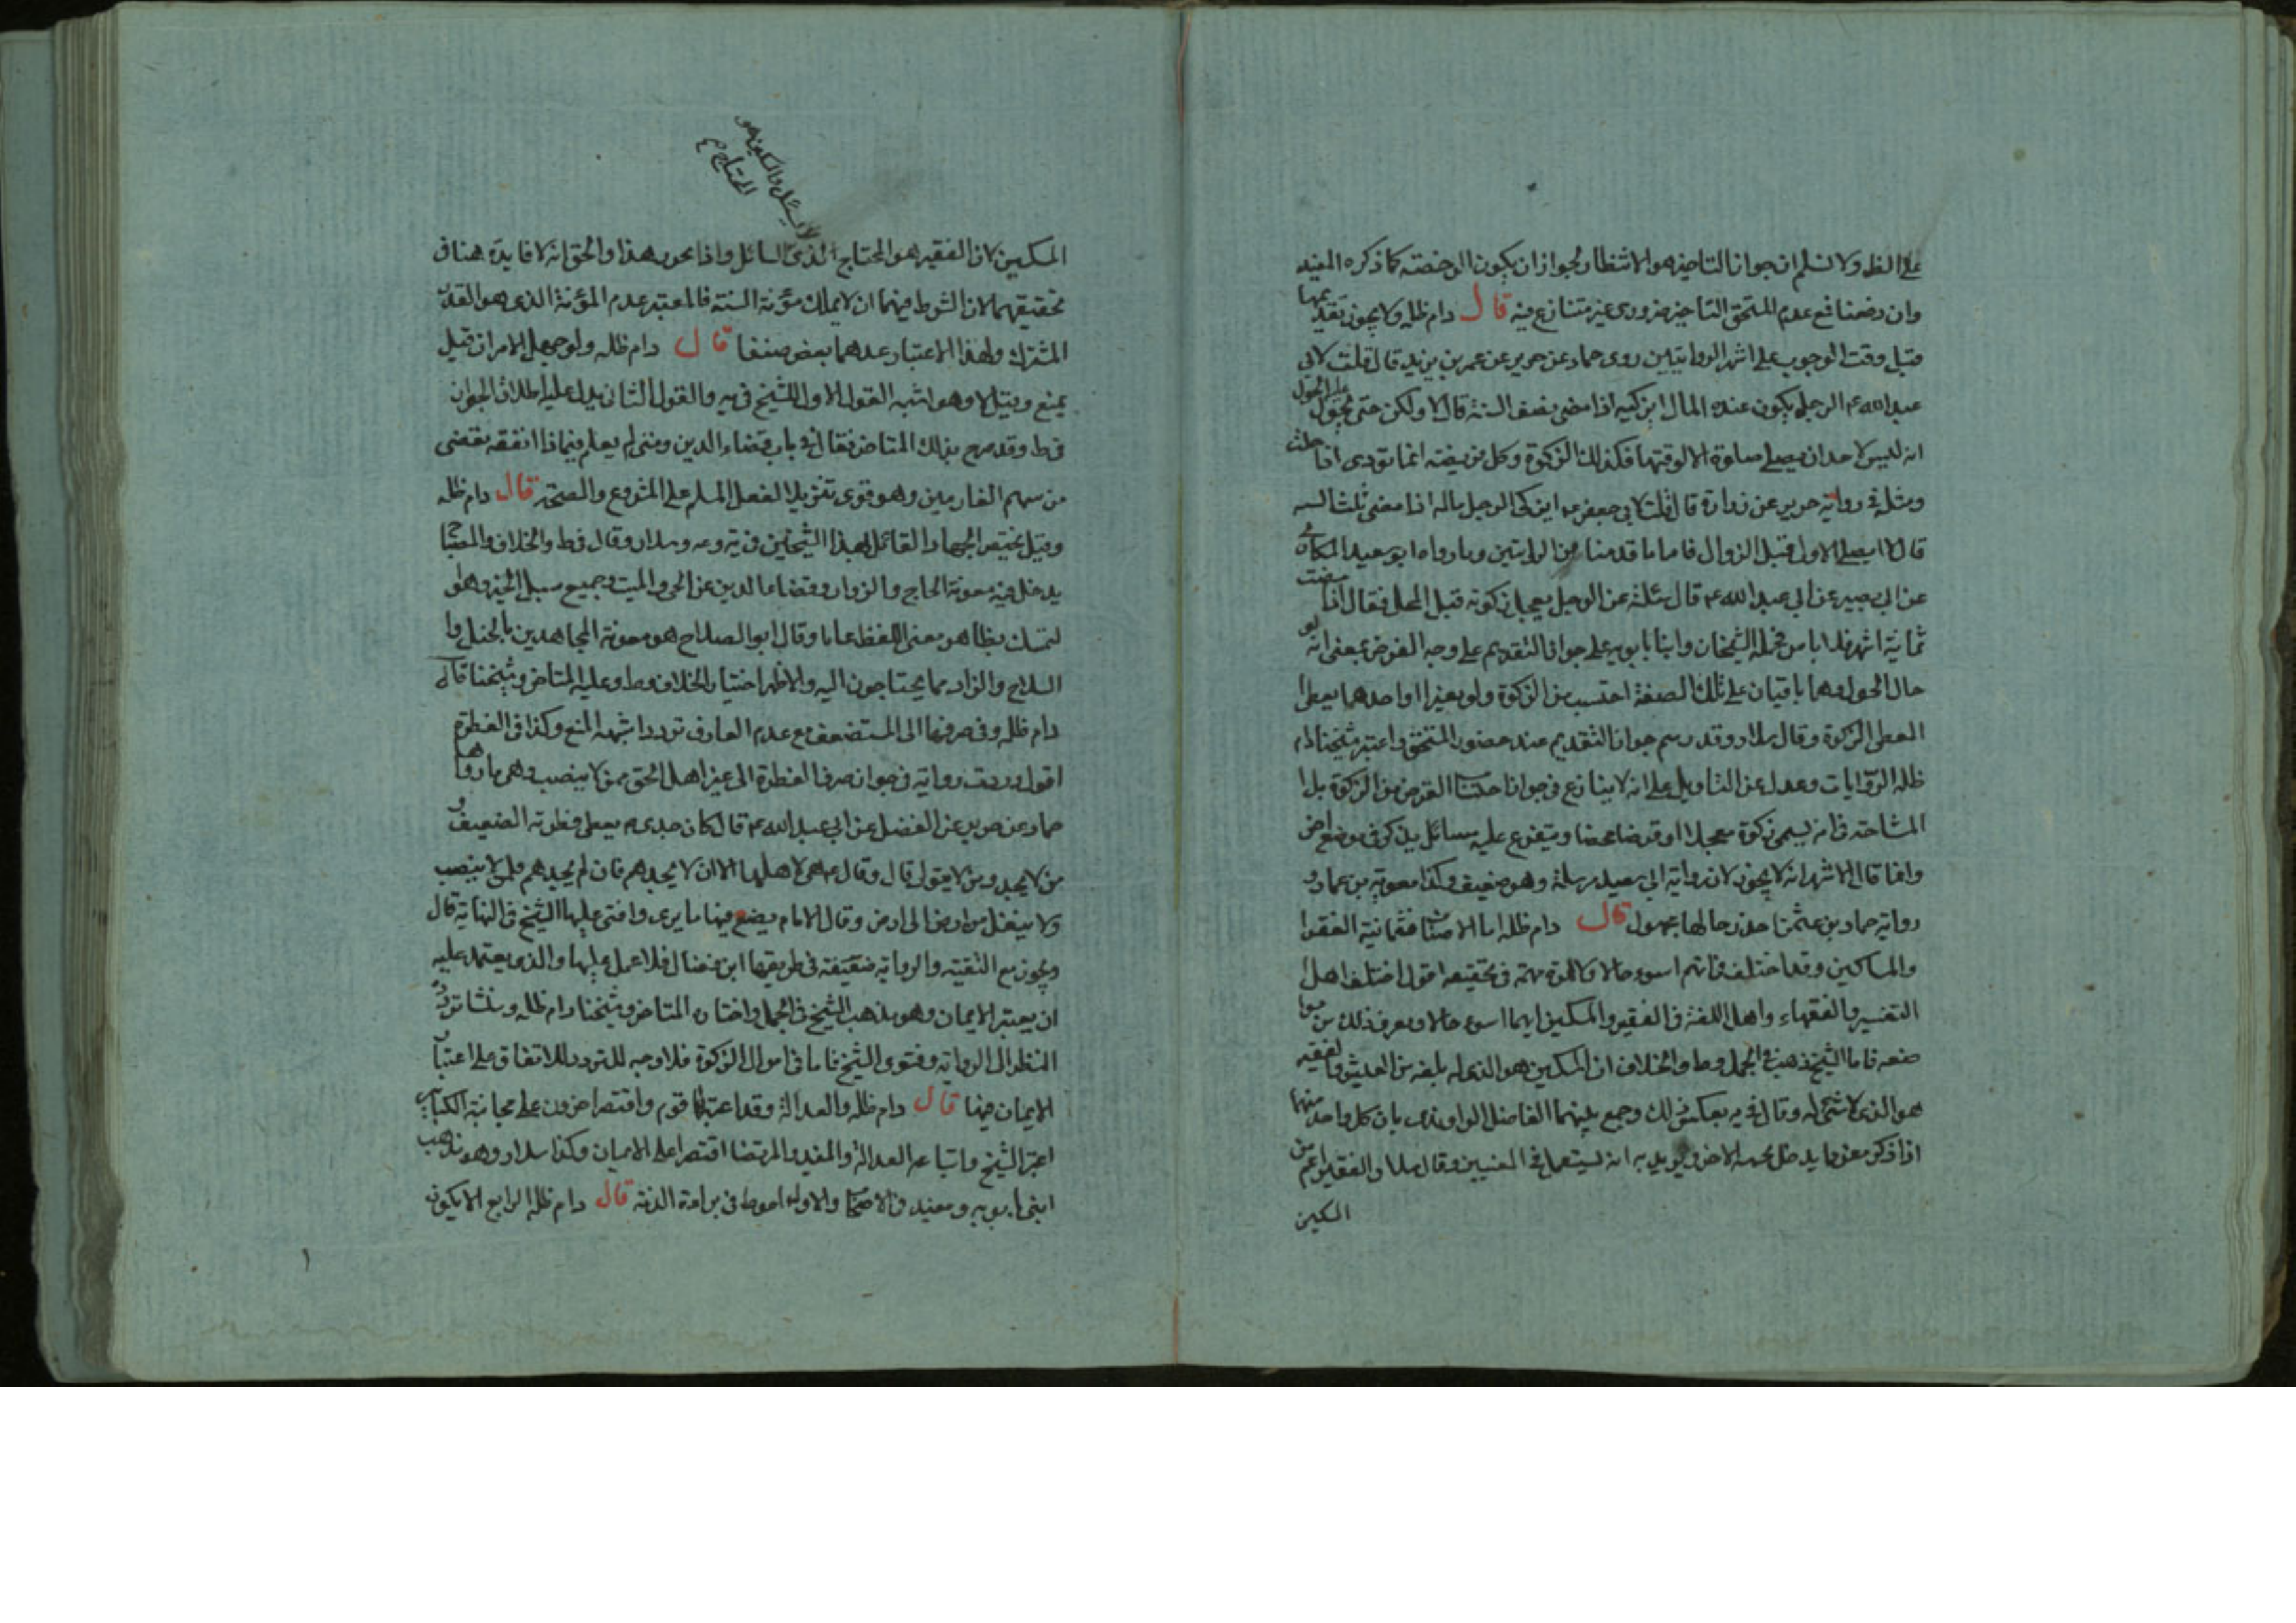 على الظهر ولا نسلم ان جواز التاخير هو الانتظار لجواز ان يكون الرخصة كما ذكره المفيد
وان دفعنا فمع عدم المستحق التاخير ضروري غير متنازع فيه قال دام ظله ولا يجوز تقديمها
قبل وقت الوجوب على اشهر الروايتين روى حماد عن حريز عن عمر بن يزيد قال قلت لابي
عبد الله ع الرجل يكون عنده المال ايزكيه اذا مضى نصف السنة قال لا ولكن حتى يحول عليه الحول
انه ليس لاحد ان يصلي صلوة الا لوقتها فكذلك الزكوة وكل فريضة انما تؤدى اذا حلت
ومثله في رواية حريز عن زرارة قال قلت لابي جعفر ع ايزكي الرجل ماله اذا مضى ثلث السنه
قال لا ايصلي الاولى قبل الزوال فاما ما قدمنا من الرايتين وما رواه ابو سعيد المكاري
عن ابي بصير عن ابي عبد الله ع قال سئلته عن الرجل يعجل زكوته قبل المحل فقال اذا مضت
ثمانية اشهر فلا باس فحمله الشيخان وابنا بابويه على جواز التقديم على وجه القرض بمعنى انه لو
حال الحول وهما باقيان على تلك الصفة احتسب من الزكوة ولو تغيرا او احدهما يعطى
المعطى الزكوة وقال سلار وقد رسم جواز التقديم عند حضور المستحق واعتبر شيخنا دام
ظله الروايات وعدل عن التاويل على انه لا ينازع في جواز احتساب القرض من الزكوة بل
المشاحة في انه يسمى زكوة معجلا او قرضا محضا ويتفرع عليه مسائل يذكر في موضع اخر
وانما قال الاشهر انه لا يجوز لان رواية ابي سعيد مرسلة وهو ضعيف وكذا معوية بن عمار و
رواية حماد بن عثمن حذر حالها مجهول قال دام ظله اما الاصناف فثمانية الفقرا
والمساكين وقد اختلف في ايهم اسوء حالا ولا ثمرة مهمة في تحقيقه اقول اختلف اهل
التفسير والفقهاء واهل اللغة في الفقير والمسكين ايهما اسوء حالا ويعرف ذلك من
صفته فاما الشيخ ذهب في الجمل وط والخلاف ان المسكين هو الذي له بلغة من العيش والفقير
هو الذي لا شئ له وقال في يه بعكس ذلك وجمع بينهما الفاضل الراوندي بان كل واحد منهما
اذا ذكر مفردا يدخل تحته الاخر ويريد به انه يستعمل في المعنيين وقال سلار الفقير اعم من
المسكين
لا يسئل والمسكين هو
المحتاج
المسكين لان الفقير هو المحتاج الذى السائل واذا تحرر هذا والحق انه لا فايدة هنا في
تحقيقهما لان الشرط فيهما ان لا يملك مؤنة السنة فالمعتبر عدم المؤنة الذي هو القدر
المشترك ولهذا الاعتبار عدهما بعض صنفا قال دام ظله ولو جهل الامران قيل
يمنع وقيل لا وهو اشبه القول الاول للشيخ في يه والقول الثاني يدل عليه اطلاق الجواز
في ط وقد صرح بذلك المتاخر فقال في باب قضاء الدين ومتى لم يعلم فيماذا انفقه يقضى
من سهم الغارمين وهو قوى تنزيلا لفعل المسلم على المشروع والصحة قال دام ظله
وقيل يختص الجهاد القائل بهذا الشيخان في يه وعه وسلار وقال في ط والخلاف والمصباح
يدخل فيه معونة الحاج والزوار وقضاء الدين عن الحي والميت وجميع سبل الخير وهو
لتمسك بظاهر معنى اللفظ عاما وقال ابو الصلاح هو معونة المجاهدين بالخيل وا
السلاح والزاد مما يحتاجون اليه والاظهر اختيار الخلاف وط وعليه المتاخر وشيخنا قال
دام ظله وفي صرفها الى المستضعف مع عدم العارف تردد اشبهه المنع وكذا في الفطرة
اقول وردت رواية في جواز صرف الفطرة الى غير اهل الحق ممن لا ينصب وهي ما رواها
حماد عن حريز عن الفضل عن ابي عبد الله ع قال كان جدى ع يعطى فطرته الضعيف و
من لا يجد ومن لا يتولى قال وقال ع هي لاهلها الا ان لا يجدهم فان لم يجدهم فلمن لا ينصب
ولا ينقل من ارض الى ارض وقال الامام يضع فيها ما يرى وافتى عليها الشيخ في النهاية قال
ويجوز مع التقية والرواية ضعيفة في طريقها ابن فضال فلا عمل عليها والذي يعتمد عليه
ان يعتبر الايمان وهو مذهب الشيخ في الجمل واختاره المتاخر وشيخنا دام ظله ومنشا تردد
النظر الى الرواية وفتوى الشيخ فاما في اموال الزكوة فلا وجه للتردد للاتفاق على اعتبار
الايمان فيها قال دام ظله والعدالة وقد اعتبرها قوم واقتصر اخرون على مجانبة الكبائر
اعتبر الشيخ واتباعه العدالة والمفيد والمرتضى اقتصرا على الايمان وكذا سلار وهو مذهب
ابني بابويه ومفيد في الاصحاب والاول احوط في براءة الذمة قال دام ظله الرابع الا يكون